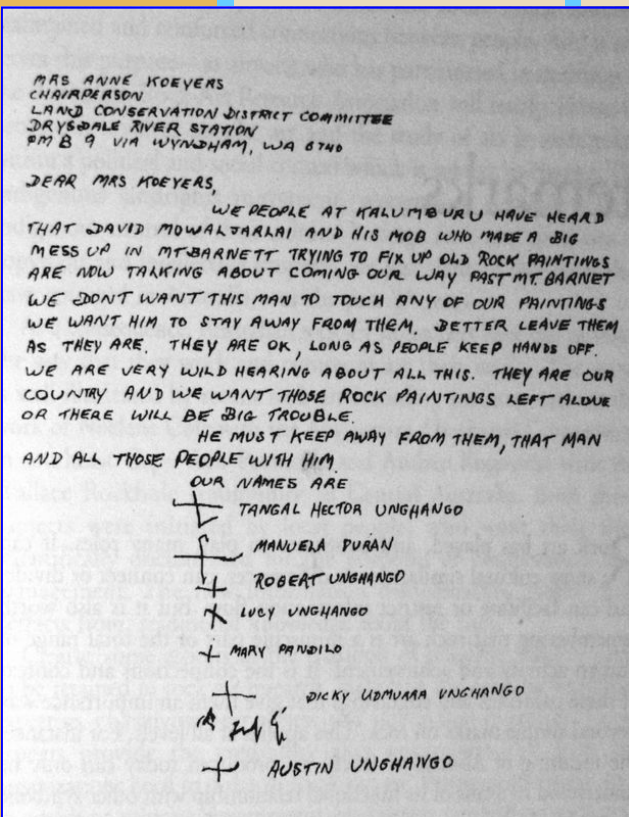 MRS ANNE KOEYERS
CHAIRPERSON
LAND CONSERVATION DISTRICT COMMITTEE
DRYSDALE RIVER STATION
PMB 9 VIA WYNDHAM, WA 6740
DEAR MRS KOEYERS,
WE PEOPLE AT KALUMBURU HAVE HEARD
THAT DAVID MOWALJARLAI AND HIS MOB WHO MADE A BIG
MESS UP IN MT BARNETT TRYING TO FIX UP OLD ROCK PAINTINGS
ARE NOW TALKING ABOUT COMING OUR WAY PAST MT. BARNET
WE DONT WANT THIS MAN TO TOUCH ANY OF OUR PAINTINGS
WE WANT HIM TO STAY AWAY FROM THEM. BETTER LEAVE THEM
AS THEY ARE. THEY ARE OK, LONG AS PEOPLE KEEP HANDS OFF.
WE ARE VERY WILD HEARING ABOUT ALL THIS. THEY ARE OUR
COUNTRY AND WE WANT THOSE ROCK PAINTINGS LEFT ALONE
OR THERE WILL BE BIG TROUBLE.
HE MUST KEEP AWAY FROM THEM, THAT MAN
AND ALL THOSE PEOPLE WITH HIM
OUR NAMES ARE
TANGAL HECTOR UNGHANGO
MANUELA PURAN
ROBERT UNGHANGO
LUCY UNGHANGO
MARY PANDILO
DICKY UDMURRA UNGHANGO
AUSTIN UNGHANGO